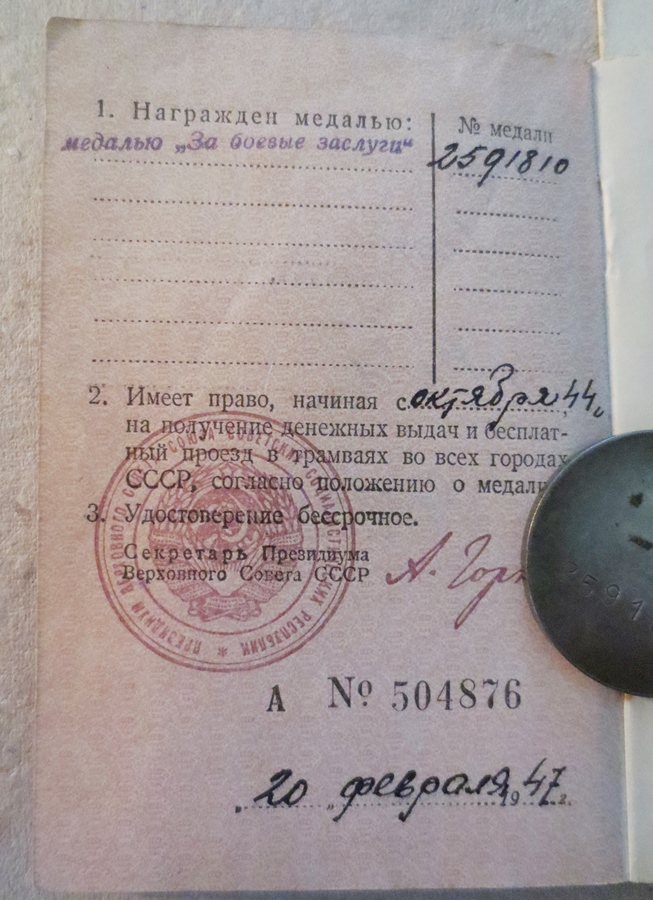 1. Награжден медалью:
№ медали
медалью „За боевые заслуги“
2591810
2. Имеет право, начиная с октября 44 г,
на получение денежных выдач и бесплат-
ный проезд в трамваях во всех городах
СССР, согласно положению о медали
3. Удостоверение бессрочное.
Секретарь Президиума
Верховного Совета СССР
А. Гор
А № 504876
„20„ февраля 1947 г.
ПРЕЗИДИУМ ВЕРХОВНОГО СОВЕТА СОЮЗА СОВЕТСКИХ СОЦИАЛИСТИЧЕСКИХ РЕСПУБЛИК *
2591